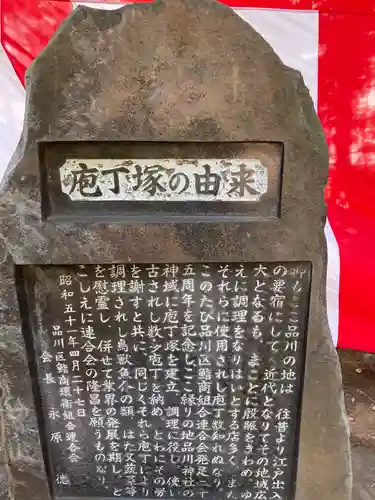 庖丁塚の由来
抑もここ品川の地は 往昔より江戸出入
の要宿にして 近代となりてその地域
大となるも、まことに殷賑をきわめ ゆ
えに調理をなりはいとする店多く、また
それらに使用されし庖丁数知れぬなり
このたび品川区鮨商組合連合会発足二十
五周年を記念し、ここ縁りの地品川神社の
神域に庖丁塚を建立し、調理に役し 使い
古されし数多庖丁を納め とわにその労
を謝すと共に、同じくそれら庖丁により
調理されし鳥獣魚介の類 はた又蔬菜等
を慰霊し 併せて業界の発展を期し、と
こしえに連合会の隆昌を願うものなり
昭和五十一年四月二十七日
品川区鮨商環衛組合連合会
会長 永原 徳